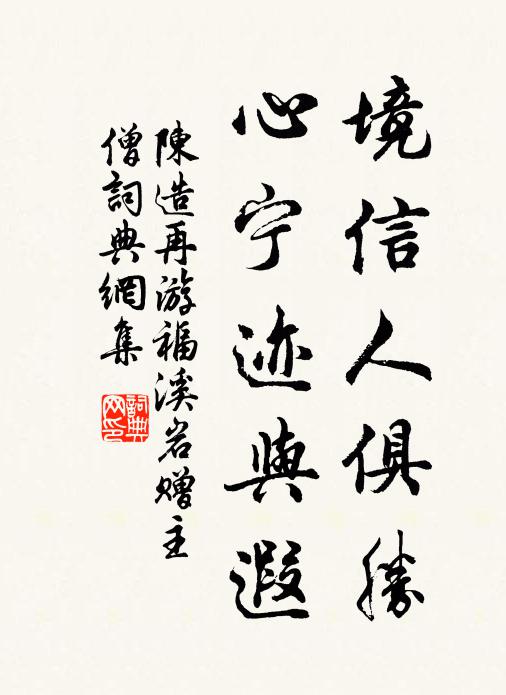 境信人俱勝
心宁迹與遐
陳造再游福溪岩赠主
僧詞典網集
詞典网印